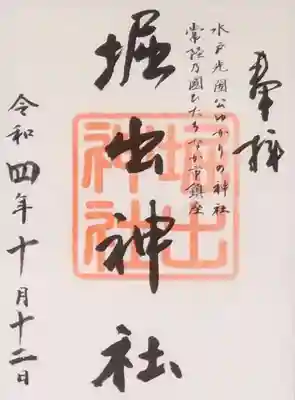 奉拝
水戸光圀公ゆかりの神社
常陸乃國ひたちなか市鎮座
堀出神社
堀出神社
令和四年十月十二日